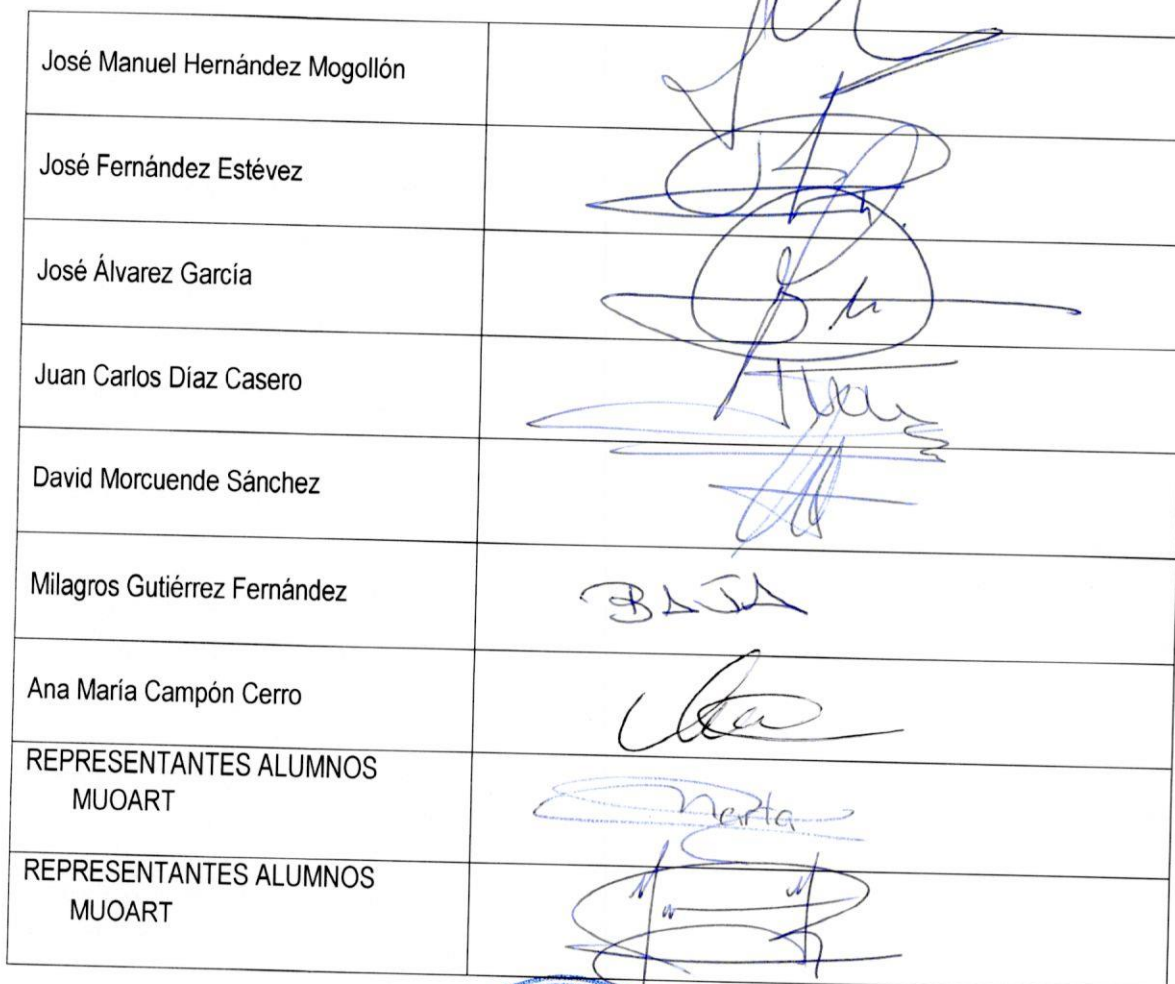 José Manuel Hernández Mogollón
José Fernández Estévez
José Álvarez García
Juan Carlos Díaz Casero
David Morcuende Sánchez
Milagros Gutiérrez Fernández
BAJA
Ana María Campón Cerro
REPRESENTANTES ALUMNOS
MUOART
Marta
REPRESENTANTES ALUMNOS
MUOART